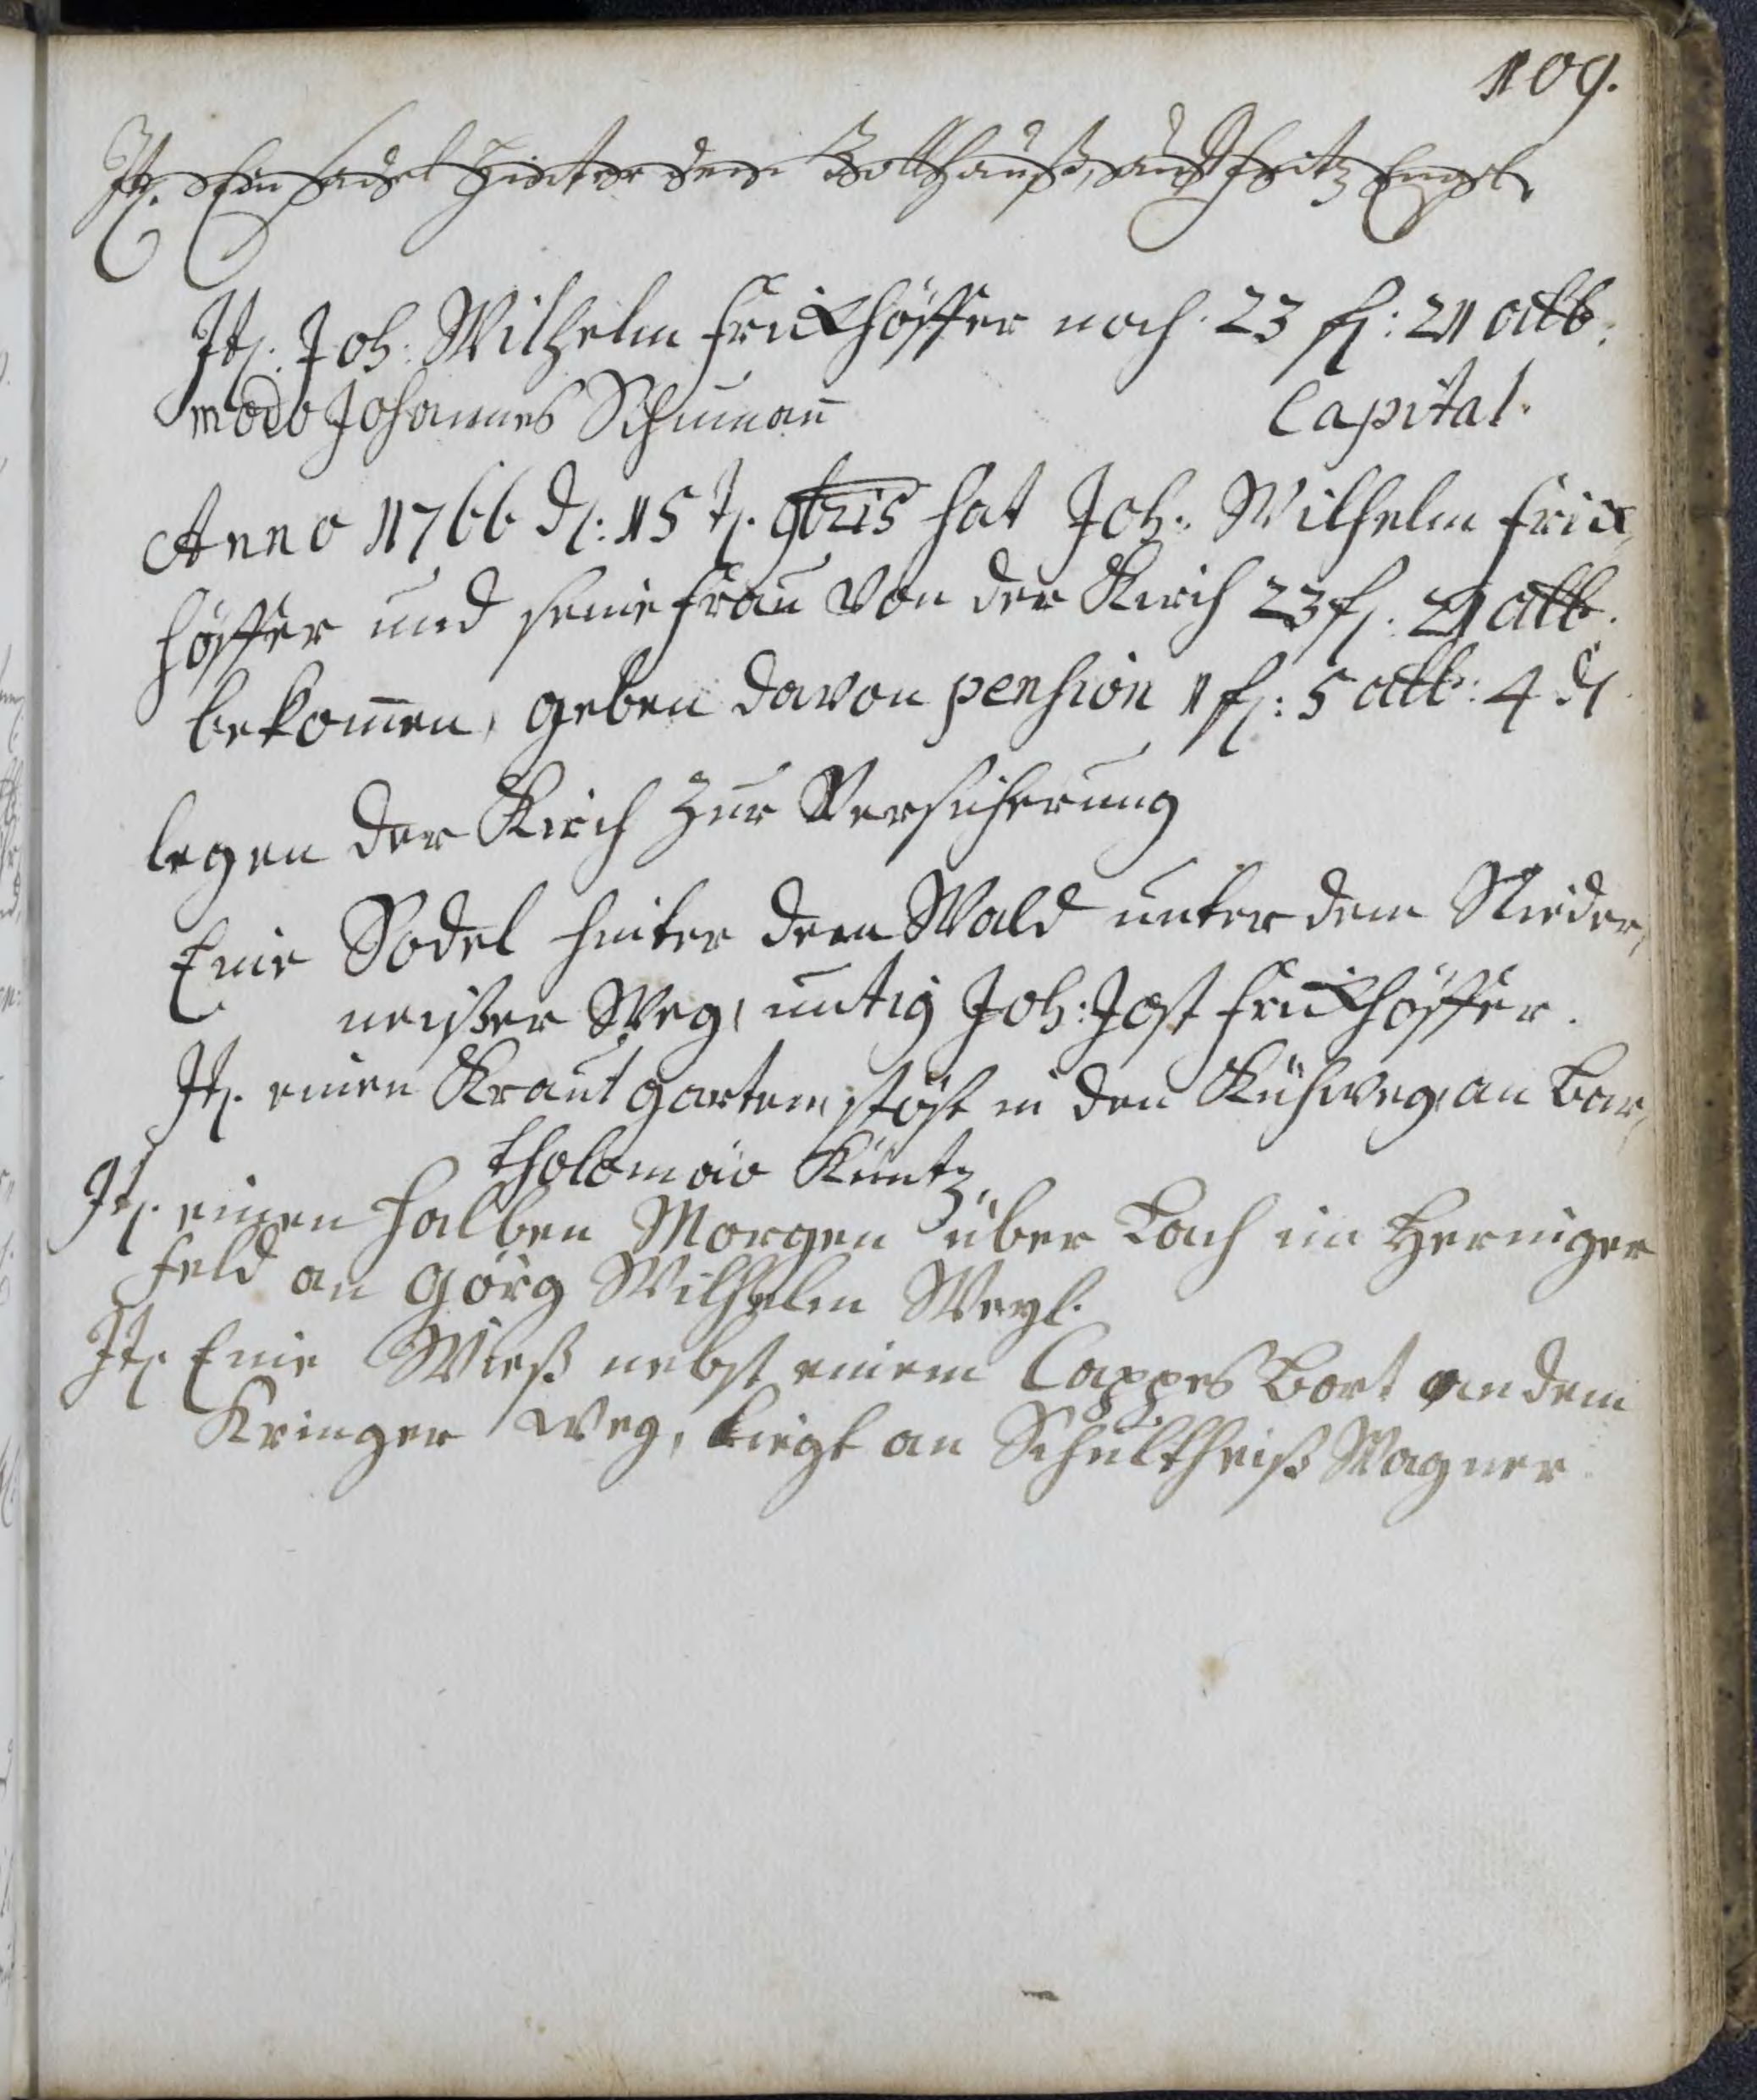 109.
It. Ein sadel hinter dem Zollhauß, auch Fritz Engel.
It. Joh: Wilhelm Frickhöffer noch 23 fl: 21 alb:
modo Johannes Schuman̅ Capital.
Anno 1766 d: 15 t. 9bris hat Joh: Wilhelm Frick,
höffer und seine Frau von der Kirch 23 fl: 21 alb.
bekom̅en, geben davon pension 1 fl: 5 alb: 4 d
legen der Kirch zur Versicherung
Eine Sodel hinter dem Wald unter dem Nieder,
neißer Weg, untig Joh: Jost Frickhöffer.
It. einen Kraut garten, stöst in den Kühweg, an Bar,
tholomäo Kuntz,
It. einen halben Morgen über Bach im Heringer
feld an Görg Wilhelm Weyl.
It. Eine Wieß nebst einem Cappes Bort an dem
Kringer weg, liegt an Schultheiß Wagner